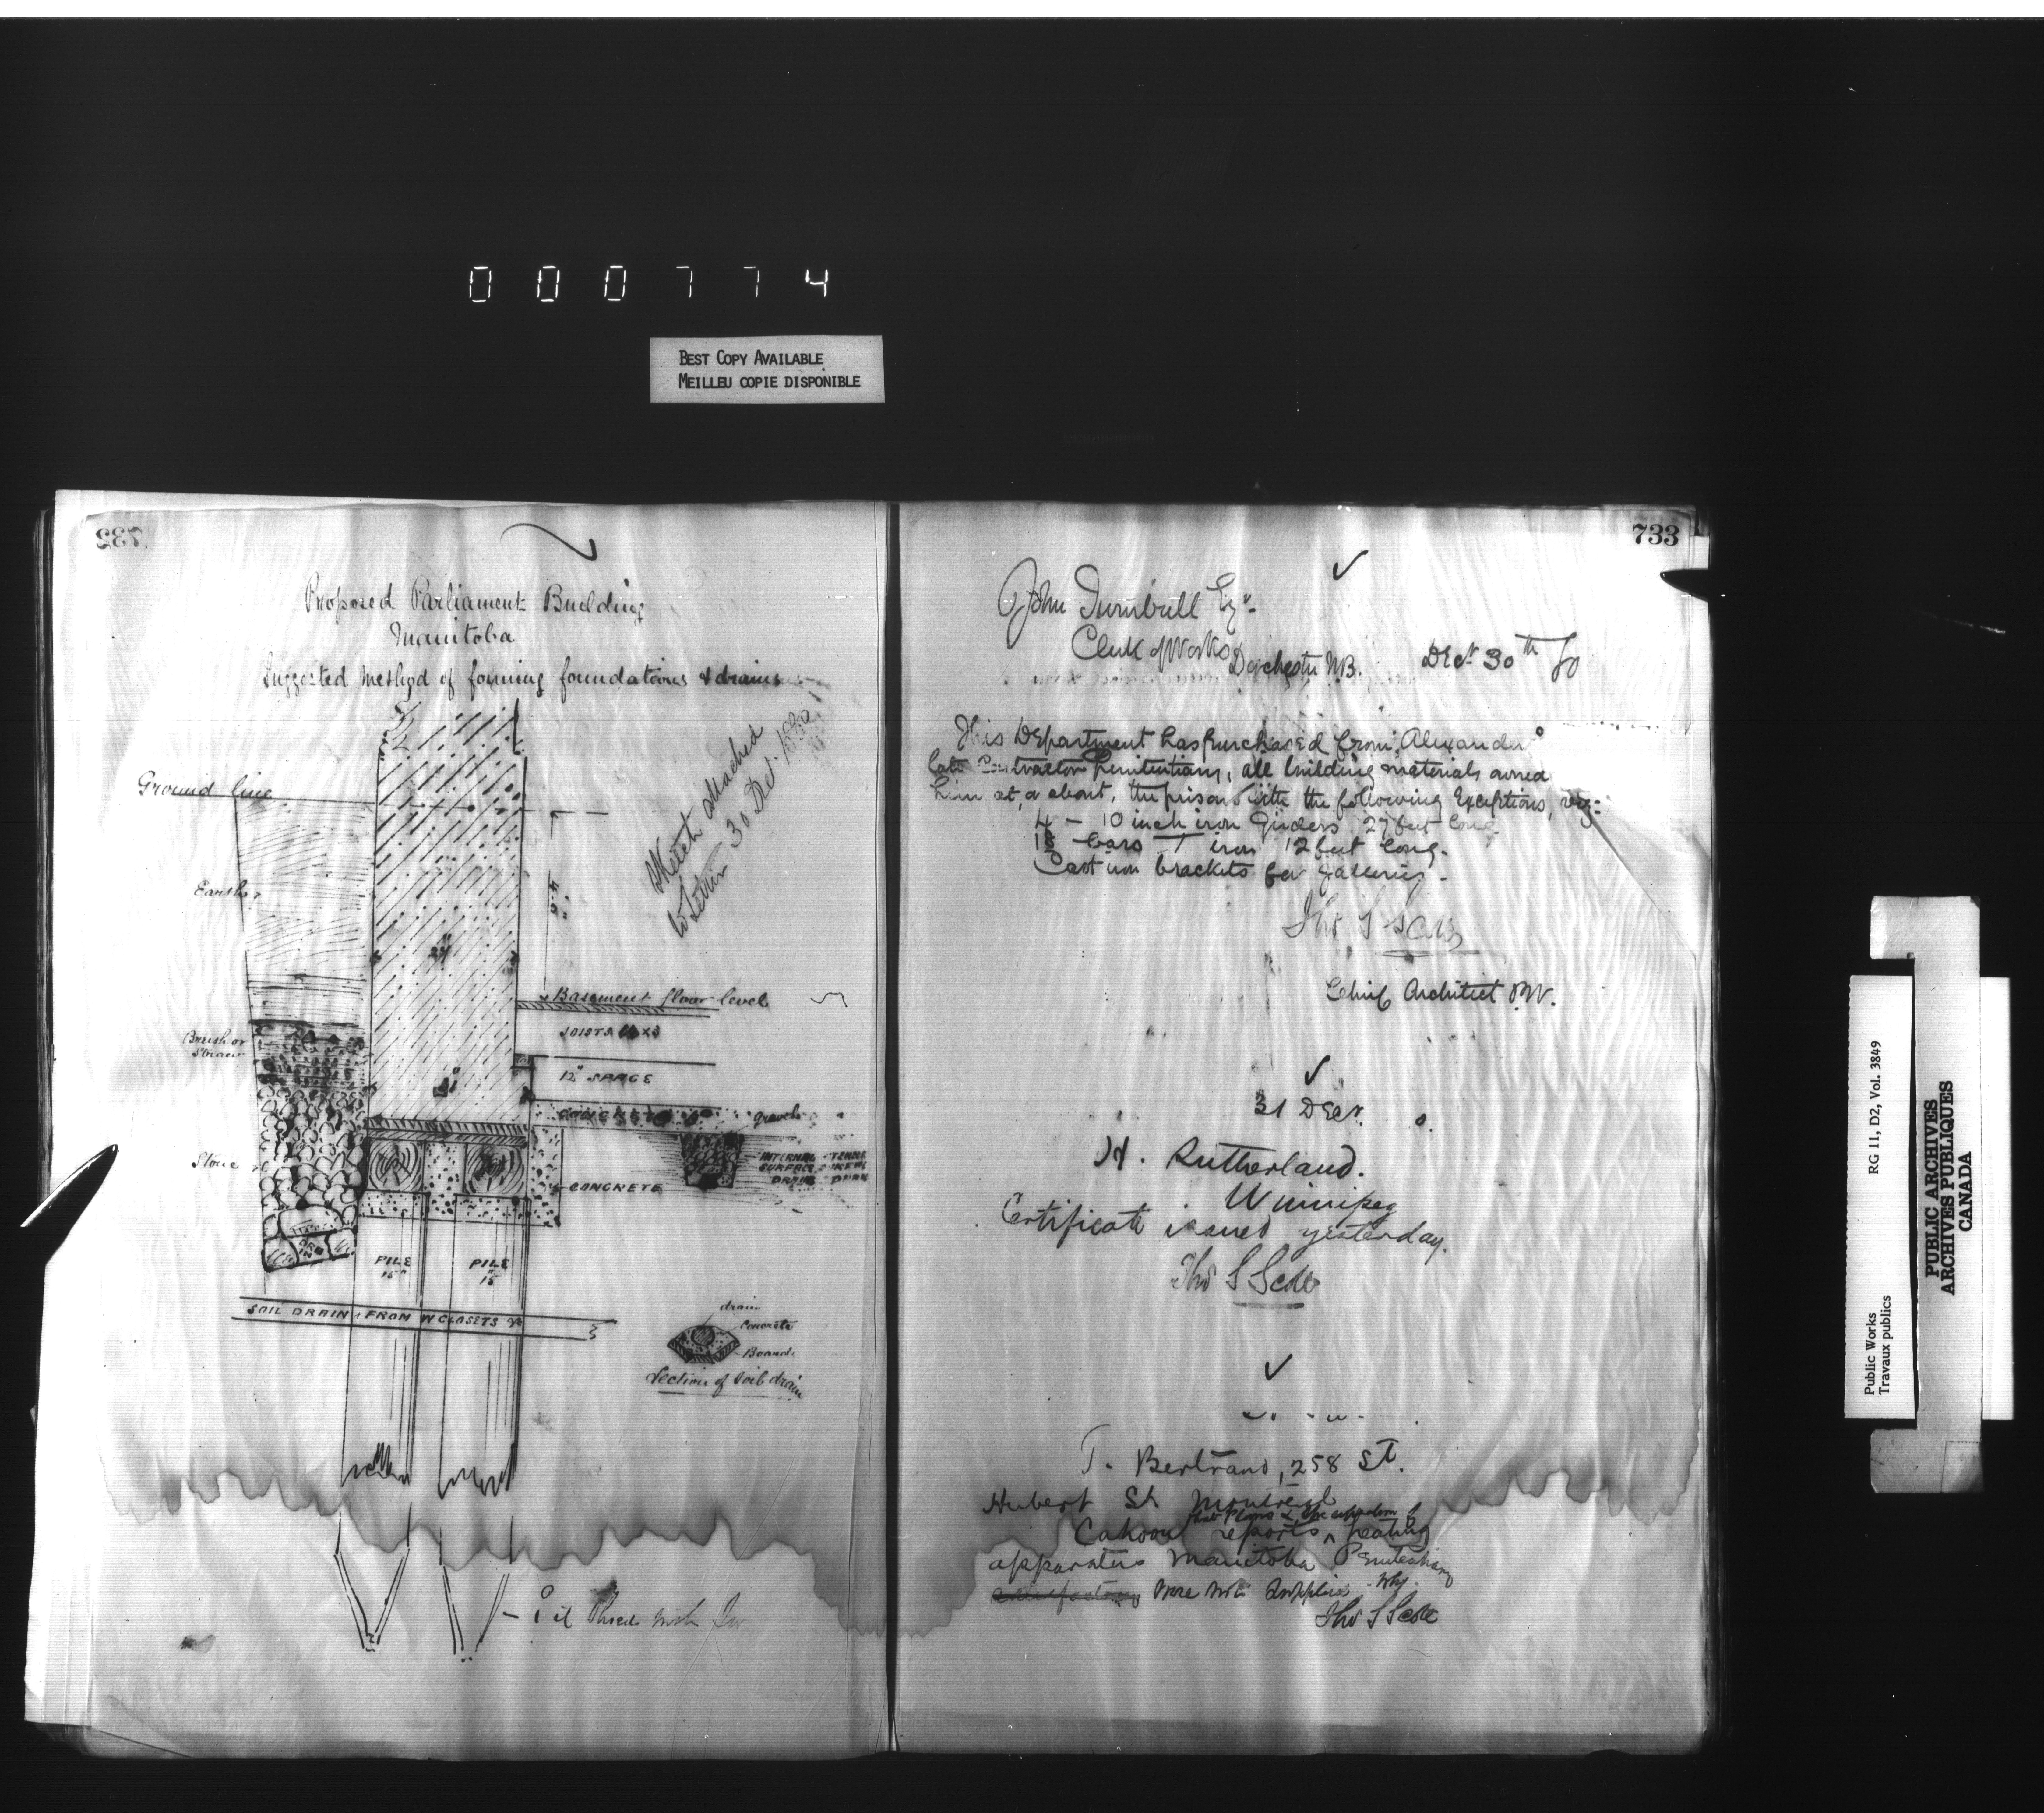 000774
BEST COPY AVAILABLE
MEILLEU COPIE DISPONIBLE
732
Proposed Parliament Building
Manitoba
Suggested method of forming foundations & drains
Sketch attached
to Letter 30 Dec. 1880
Ground line
Earth
24"
Basement floor level
JOISTS
Brush or
Straw
12" SPACE
CONCRETE
gravel
Stone
INTERNAL
SURFACE
DRAIN
CONCRETE
PILE
15"
PILE
15"
SOIL DRAIN FROM W CLOSETS &c
drain
Concrete
Boards
Section of Soil drain
733
John Turnbull Esqr.
Clerk of Works
Dorchester N.B. Decr 30th 80
This Department has purchased from Alexander
late Contractor Penitentiary, all building materials owned
him at, or about, the prison with the following Exceptions, viz:
4 - 10 inch iron Girders 27 feet long
bars T iron 12 feet long.
Cast iron brackets for galleries.
Thos S Scott
Chief Architect P.W.
31 Decr.
H. Rutherland.
Winnipeg
Certificate issued yesterday.
Thos S Scott
T. Bertrand, 258 St.
Hubert St Montreal
that Plans & Specification of
Cahoon reports ^ heating
apparatus Manitoba Penitentiary
were not supplied - why.
Thos S Scott
Public Works
Travaux publics
RG 11, D2, Vol. 3849
PUBLIC ARCHIVES
ARCHIVES PUBLIQUES
CANADA